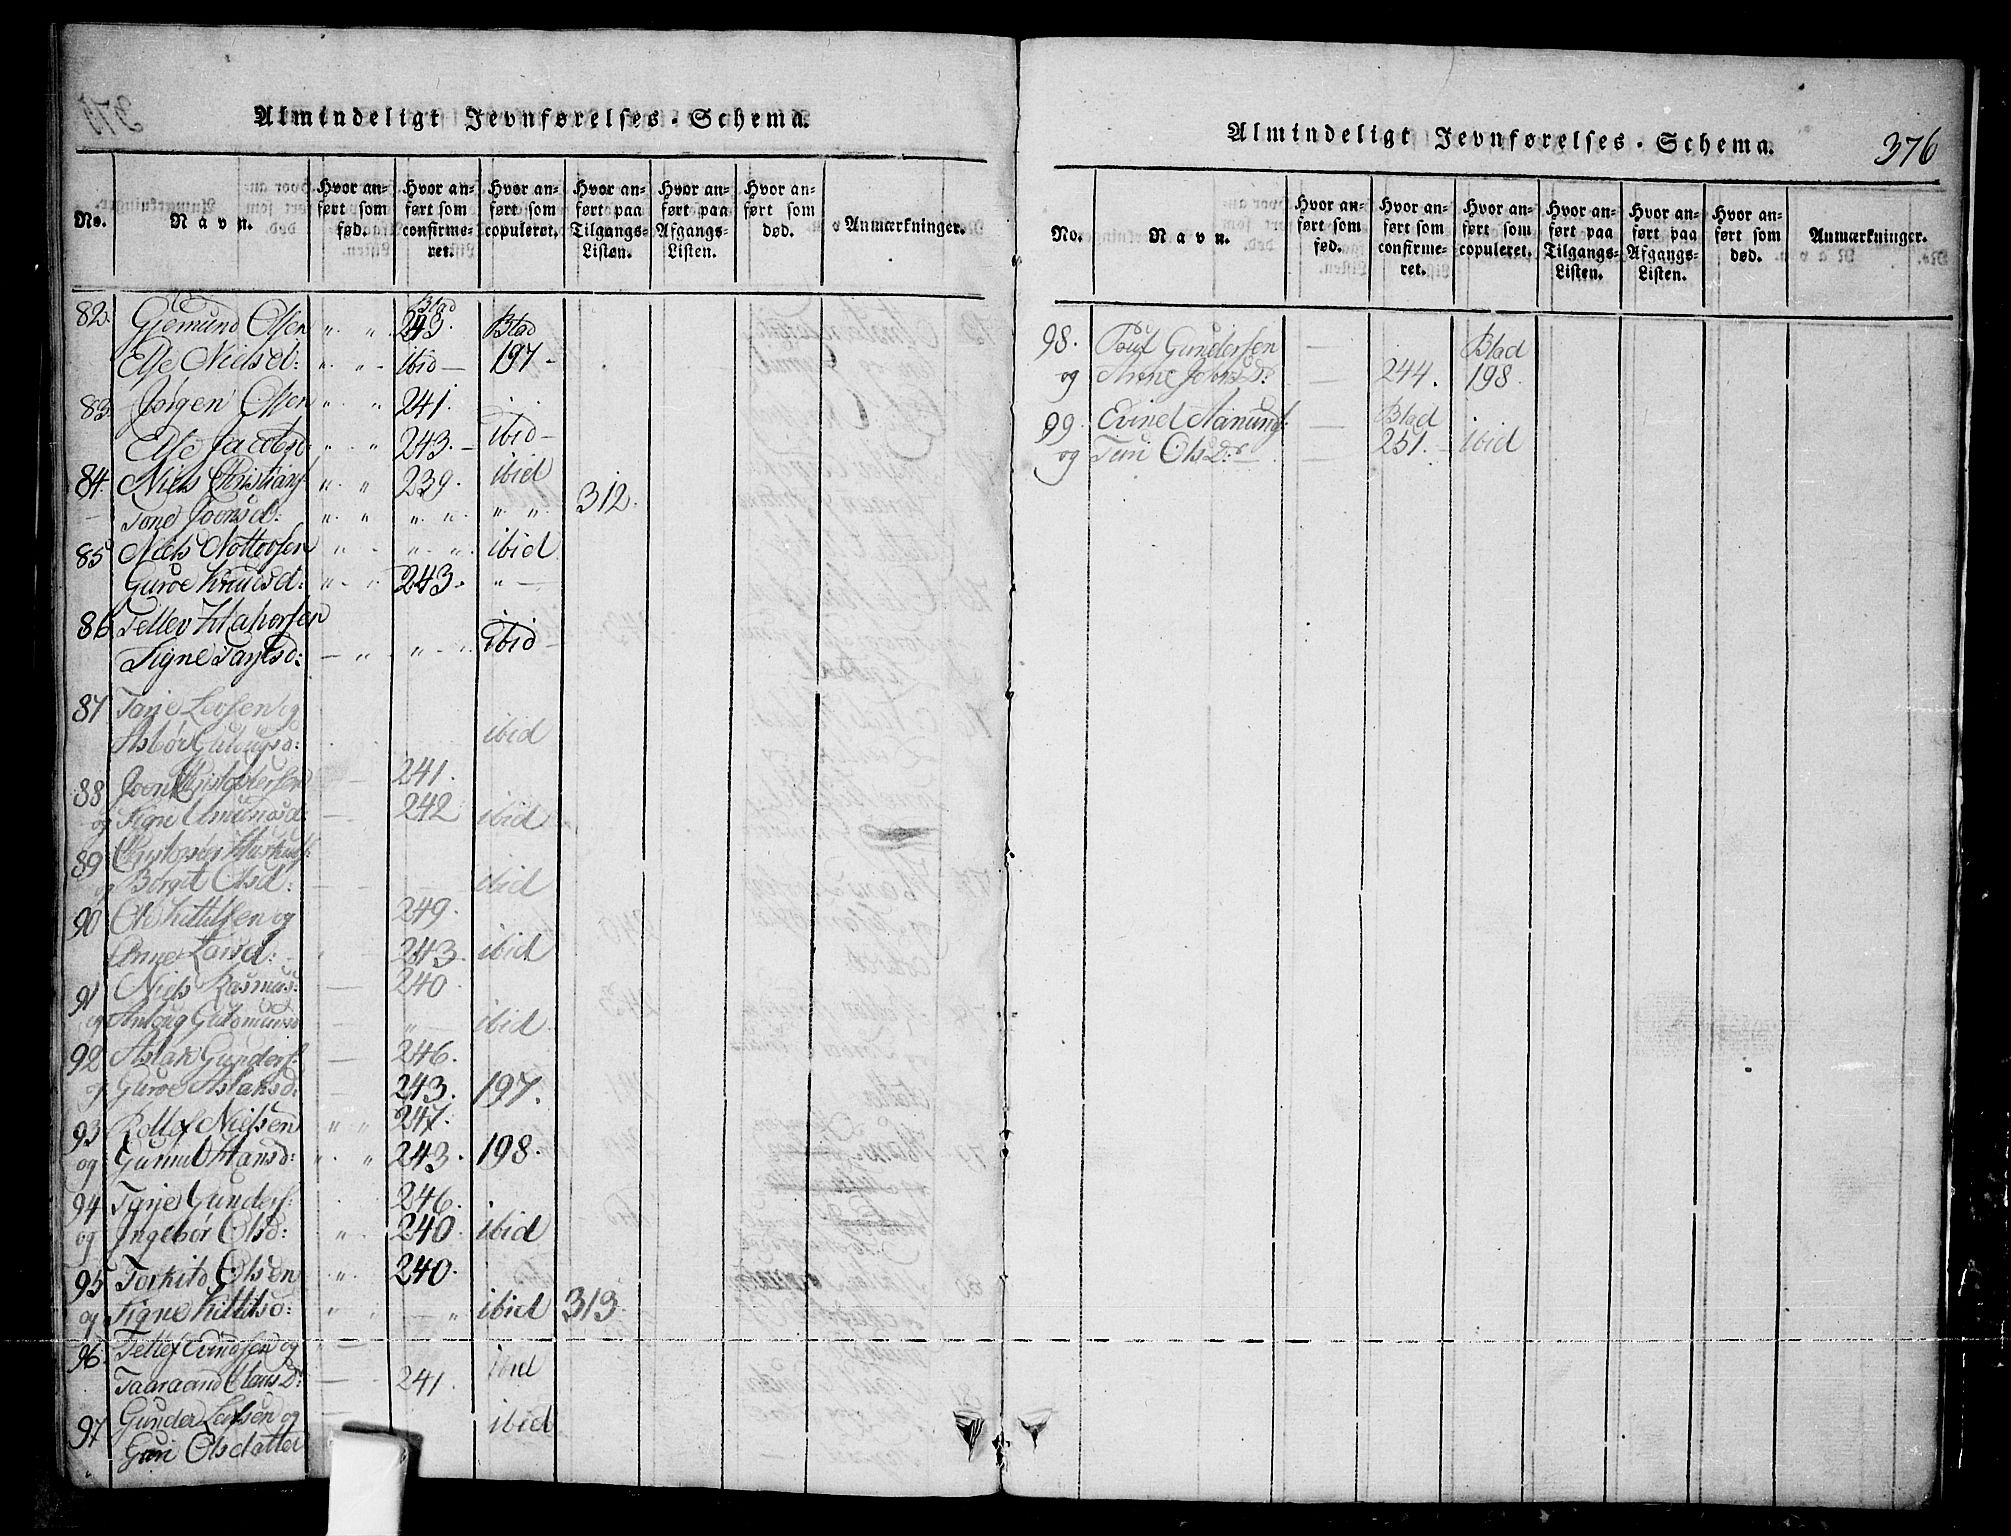 Almindeligt Jevnførelses-Schema.
No. Navn. Hvor anført som fød. Hvor anført som confirmeret. Hvor anført som copuleret. Hvor anført paa Tilgangs-Listen. Hvor anført paa Afgangs-Listen. Hvor anført som død. Anmærkninger.
82. Giemund Olsen " " Blad 243. Blad
Else Nielsd: " " - ibid - 197 -
83. Jørgen Olsen " " 241.
Else Jacobsd: " " 243. - ibid -
84. Niels Christians: " " 239. ibid
Tone Joonsd: " " " " " " 312.
85 Niels Nottersen " - " " ibid
Guroe Knudsd: " - " 243. " -
86 Tellev Halvorsen
Signe Tarjesd: - " " - " ibid -
87 Tarje Levsen og
Asbør ibid
88 Joen Christophersen - 241.
og Signe Amundsd: - 242 ibid
89
og Børgit Olsd: - - ibid
90 Ole Kittilsen og 249.
Anne Larsd: " 243 ibid
91 Niels Rasmus: - 240
og - " - ibid
92 Aslak Gunders: - 246.
og Guroe Aslaksd: - 243. 197.
93 Nielsen " " 247.
og Gunnil Hansd: " " 243. 198.
94 Tarje Gunders: 246.
og Ingebør Olsd: " 240 ibid
95 Torkild Olsen " 240.
og Signe Kittilsd: " - " ibid 313.
96. Tellef Evindsen og " -
Taaraand ClausD: - - 241. ibid
97 Gunder Leifsen og - ibid
Guri Olsdatter
Almindeligt Jevnførelses-Schema. 376
No. Navn. Hvor anført som fød. Hvor anført som confirmeret. Hvor anført som copuleret. Hvor anført paa Tilgangs-Listen. Hvor anført paa Afgangs-Listen. Hvor anført som død. Anmærkninger.
98. Poul Gundersen - Blad
og Anne JoensD: - 244. 198.
99. Evind Aanunds: - Blad
og OlsDr - 251. - ibid